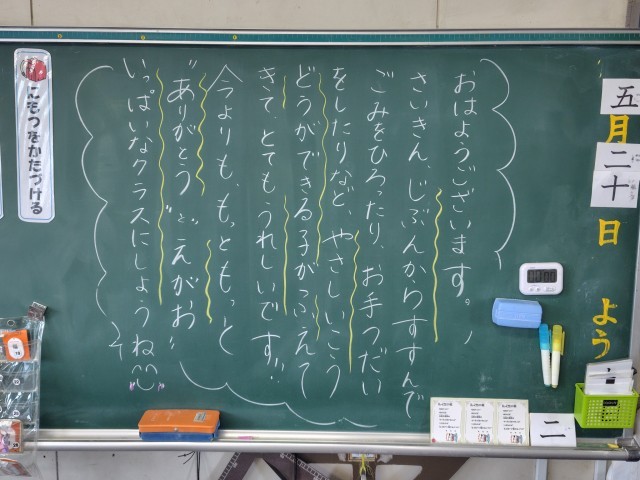 五月二十日
よう
おはようございます。
さいきん、じぶんからすすんで
ごみをひろったり、お手つだい
をしたりなど、やさしいこう
どうができる子がふえて
きて、とてもうれしいです!!
今よりも、もっともっと
"ありがとう"と"えがお"
いっぱいなクラスにしようね
にもつをかたづける
二